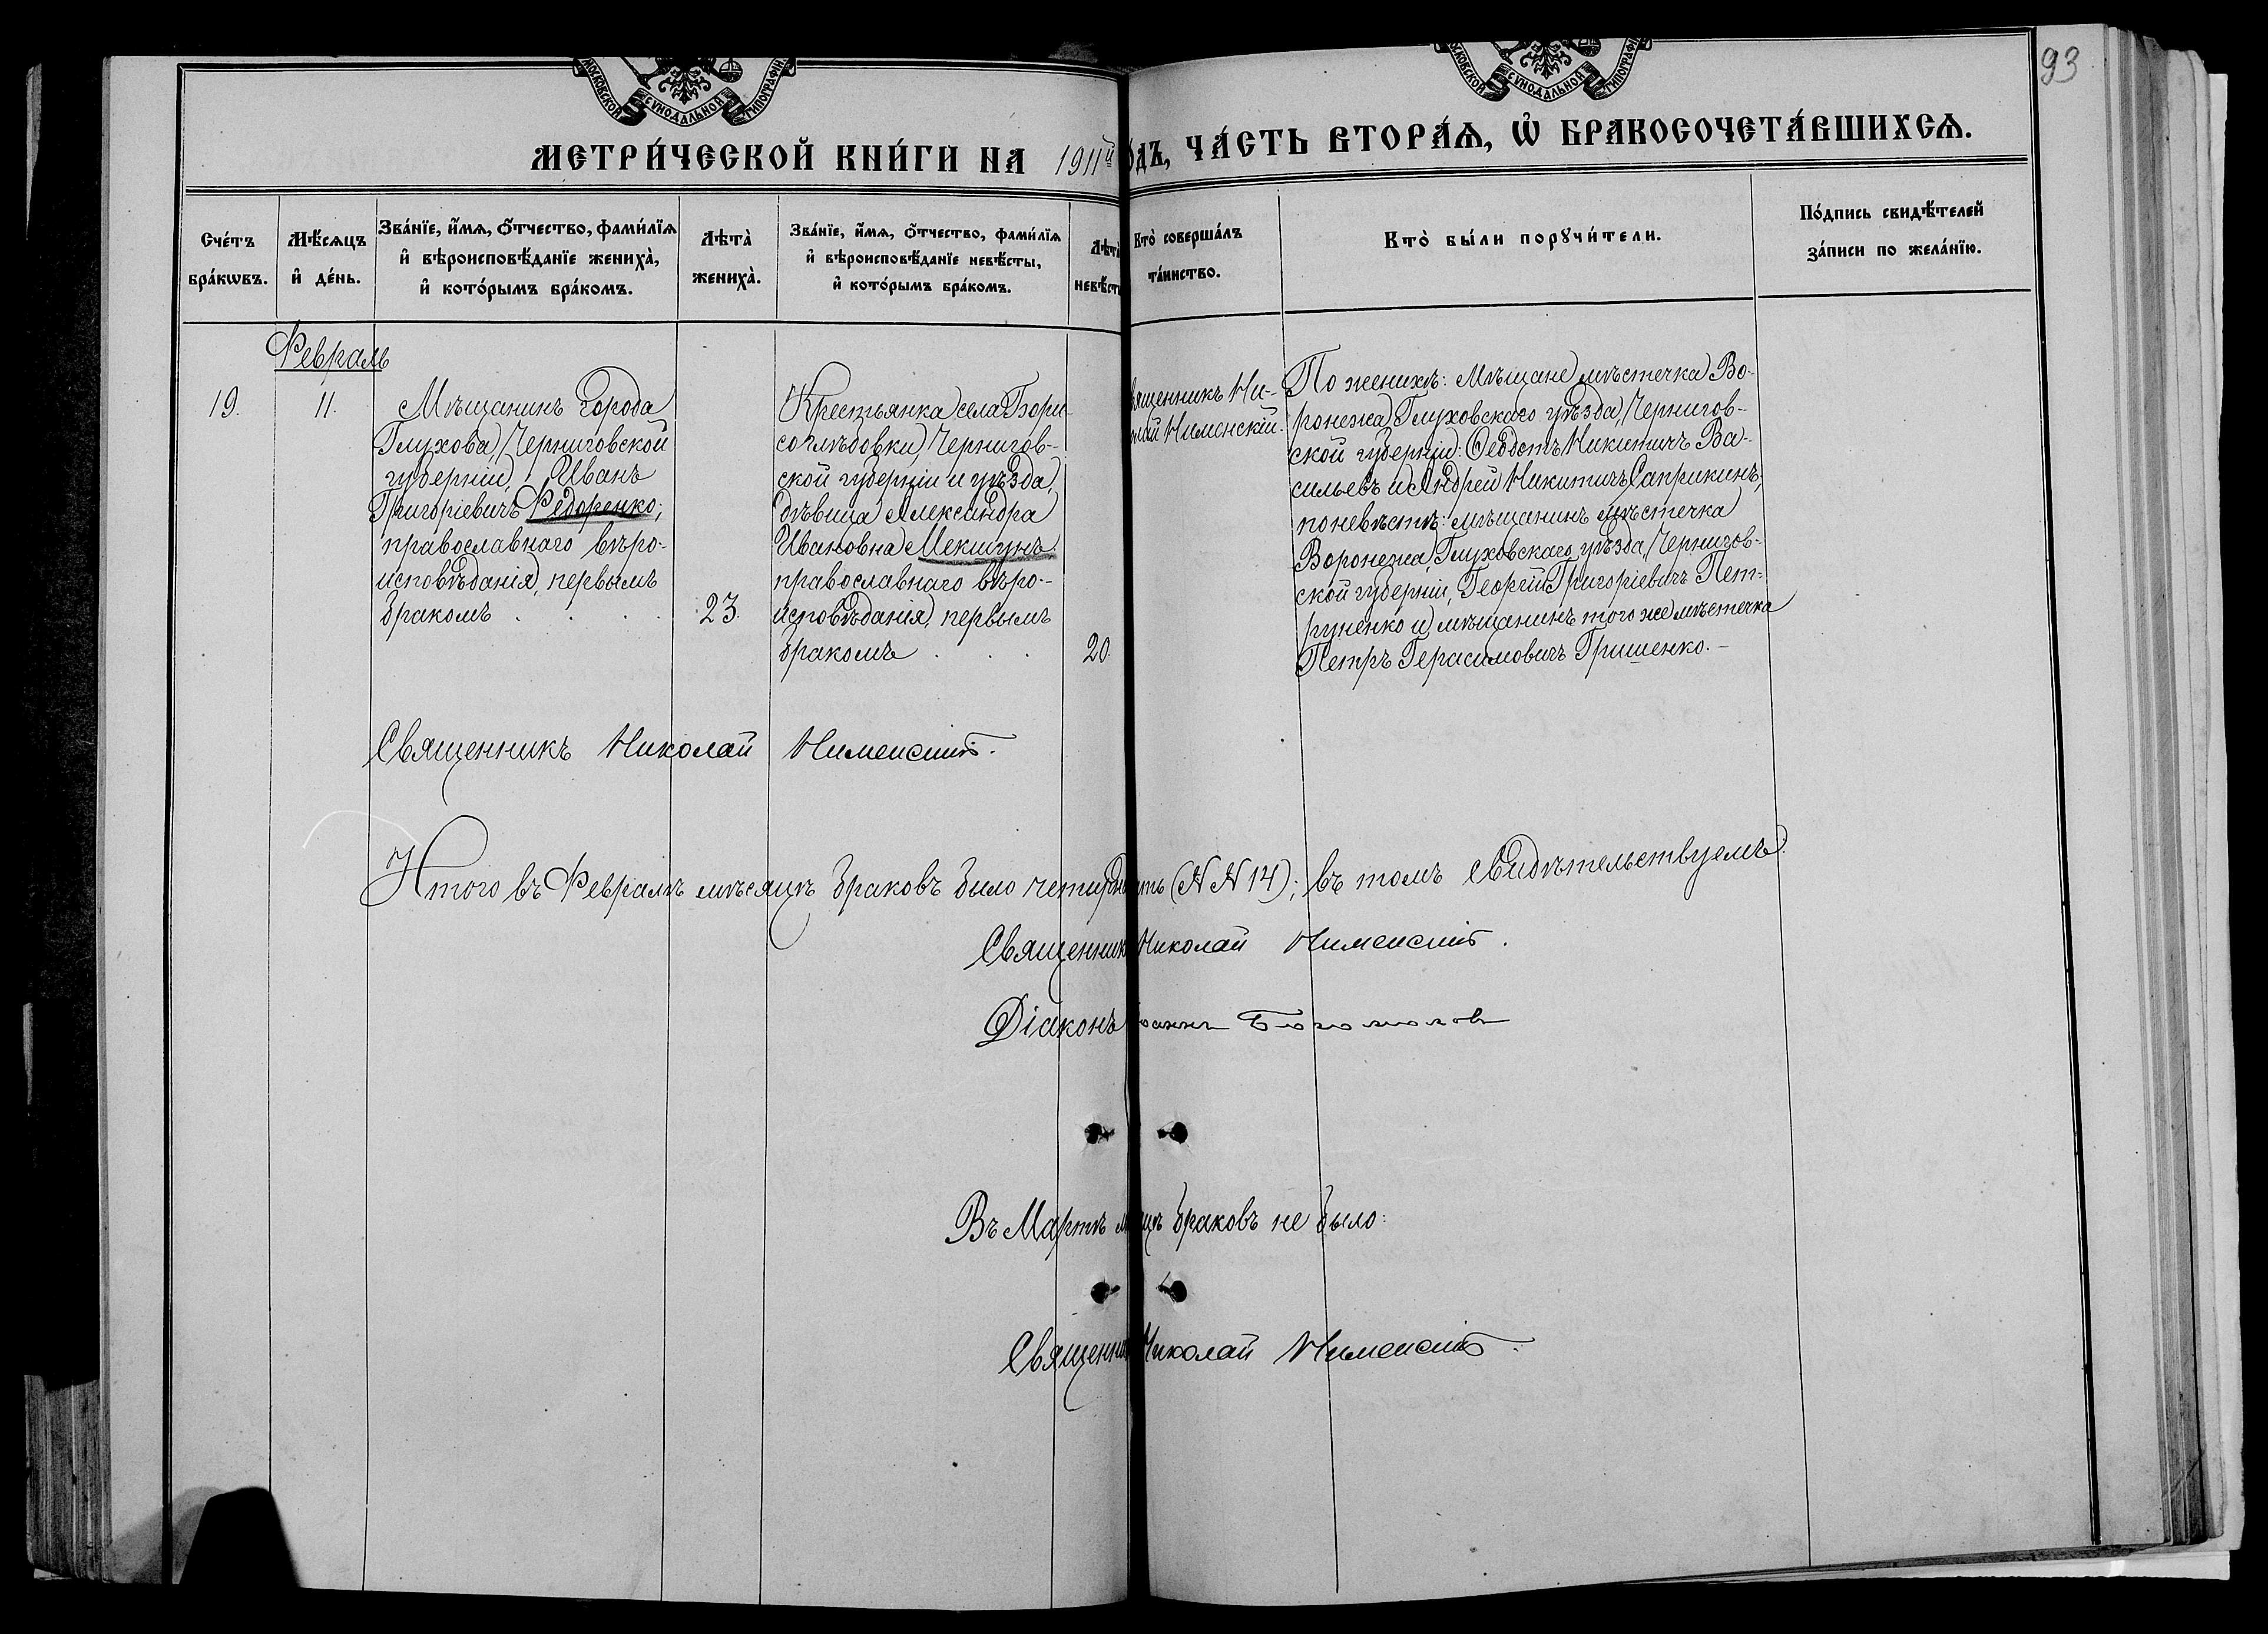 МОСКОВСКОЙ СѴНОДАЛЬНОЙ ТИПОГРАФІИ
МОСКОВСКОЙ СѴНОДАЛЬНОЙ ТИПОГРАФІИ
93
МЕТРИ́ЧЕСКОЙ КНИ́ГИ НА 1911й
ОДЪ, ЧА́СТЬ ВТОРА́Ѧ, Ѡ҆ БРАКОСОЧЕТА́ВШИХСѦ.
Сче́тъ
бра́кѡвъ.
Мѣ́сѧцъ
и҆ де́нь.
Зва́нїе, и҆́мѧ, ѻ҆́тчество, фами́лїѧ
и҆ вѣроисповѣ́данїе жениха̀,
и҆ кото́рымъ бра́комъ.
Лѣта̀
жениха̀.
Зва́нїе, и҆́мѧ, ѻ҆́тчество, фами́лїѧ
и҆ вѣроисповѣ́данїе невѣ́сты,
и҆ кото́рымъ бра́комъ.
Лѣта̀
невѣ́сты
Кто̀ соверша́лъ
та́инство.
Кто̀ бы́ли порꙋчи́тели.
По́дпись свидѣ́телей
за́писи по жела́нїю.
Февраль
19.
11.
Мѣщанинъ города
Глухова, Черниговской
губерніи, Иванъ
Григоріевичъ Федоренко;
православнаго вѣро-
исповѣданія, первымъ
бракомъ . . . .
23.
Крестьянка села Бори-
соглѣбовки, Чернигов-
ской губерніи и уѣзда,
дѣвица Александра
Ивановна Мекшунъ
православнаго вѣро-
исповѣданія, первымъ
бракомъ . . .
20.
вященникъ Ни-
олай Нименскій.
По женихѣ: мѣщане мѣстечка Во-
ронежа, Глуховскаго уѣзда, Чернигов-
ской губерніи: Ѳеодотъ Никитичъ Ва-
сильевъ и Андрей Никитичъ Саприкинъ;
по невѣстѣ: мѣщанинъ мѣстечка
Воронежа, Глуховскаго уѣзда, Чернигов-
ской губерніи, Георгій Григоріевичъ Пет-
руненко и мѣщанинъ того же мѣстечка
Петръ Герасимовичъ Гришенко.-
Священникъ Николай Нименскій.
Итого въ Февралѣ мѣсяцѣ браковъ было четырнадцать (№№ 14); въ томъ свидѣтельствуемъ:
Священник Николай Нименскій.
Діаконъ Іоаннъ Богомолов
Въ Мартѣ м-цѣ браковъ не было:
Священни Николай Нименскій.